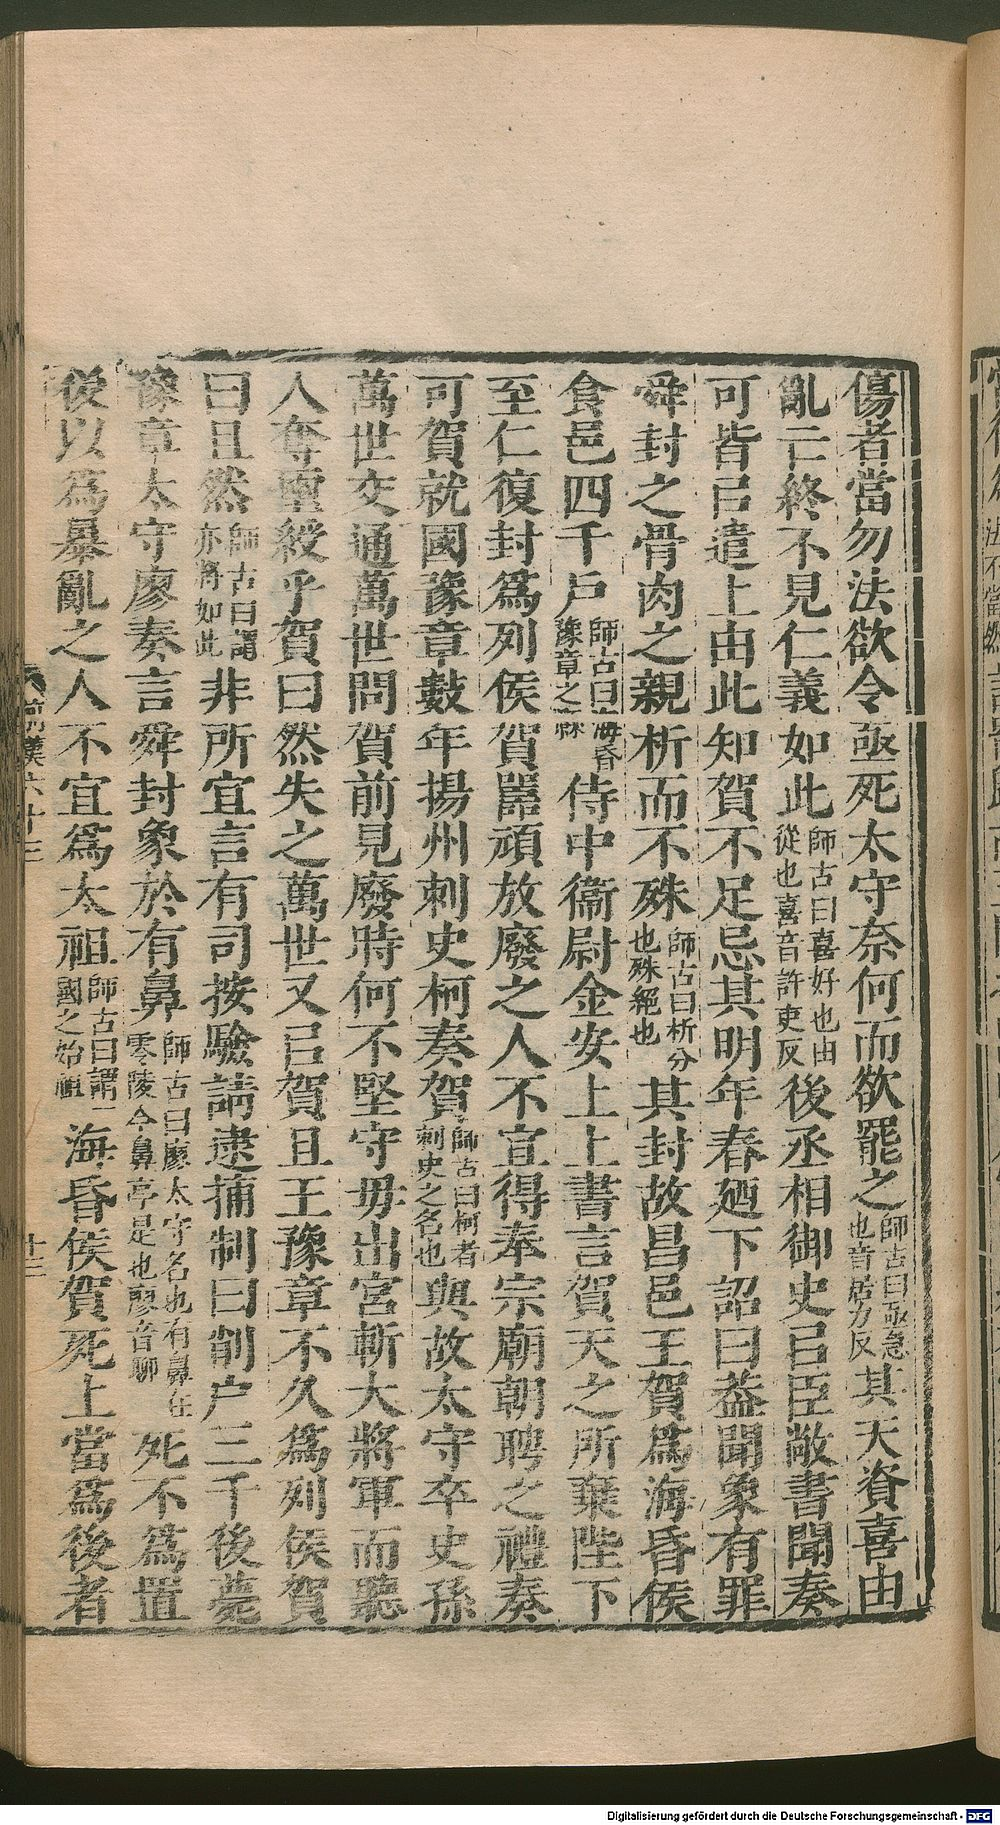 傷者當勿法欲令亟死太守奈何而欲罷之師古曰亟急也音居力反其天資喜由
亂亡終不見仁義如此師古曰喜好也由從也喜音許吏反後丞相御史㠯臣敞書聞奏
可皆㠯遣上由此知賀不足忌其明年春廼下詔曰葢聞象有罪
舜封之骨肉之親析而不殊師古曰析分也殊絕也其封故昌邑王賀爲海昏侯
食邑四千戶師古曰海昏豫章之縣侍中衞尉金安上上書言賀天之所棄陛下
至仁復封爲列侯賀嚚頑放廢之人不宜得奉宗廟朝聘之禮奏
可賀就國豫章數年揚州刺史柯奏賀師古曰柯者刺史之名也與故太守卒史孫
萬世交通萬世問賀前見廢時何不堅守毋出宮斬大將軍而聽
人奪璽綬乎賀曰然失之萬世又㠯賀且王豫章不久爲列侯賀
曰且然師古曰謂亦將如此非所宜言有司按驗請逮捕制曰削户三千後薨
豫章太守廖奏言舜封象於有鼻師古曰廖太守名也有鼻在零陵今鼻亭是也廖音聊死不爲置
後以爲暴亂之人不宜爲太祖師古曰謂一國之始祖海昏侯賀死上當爲後者
前漢六十三
十三
Digitalisierung gefördert durch die Deutsche Forschungsgemeinschaft - DFG